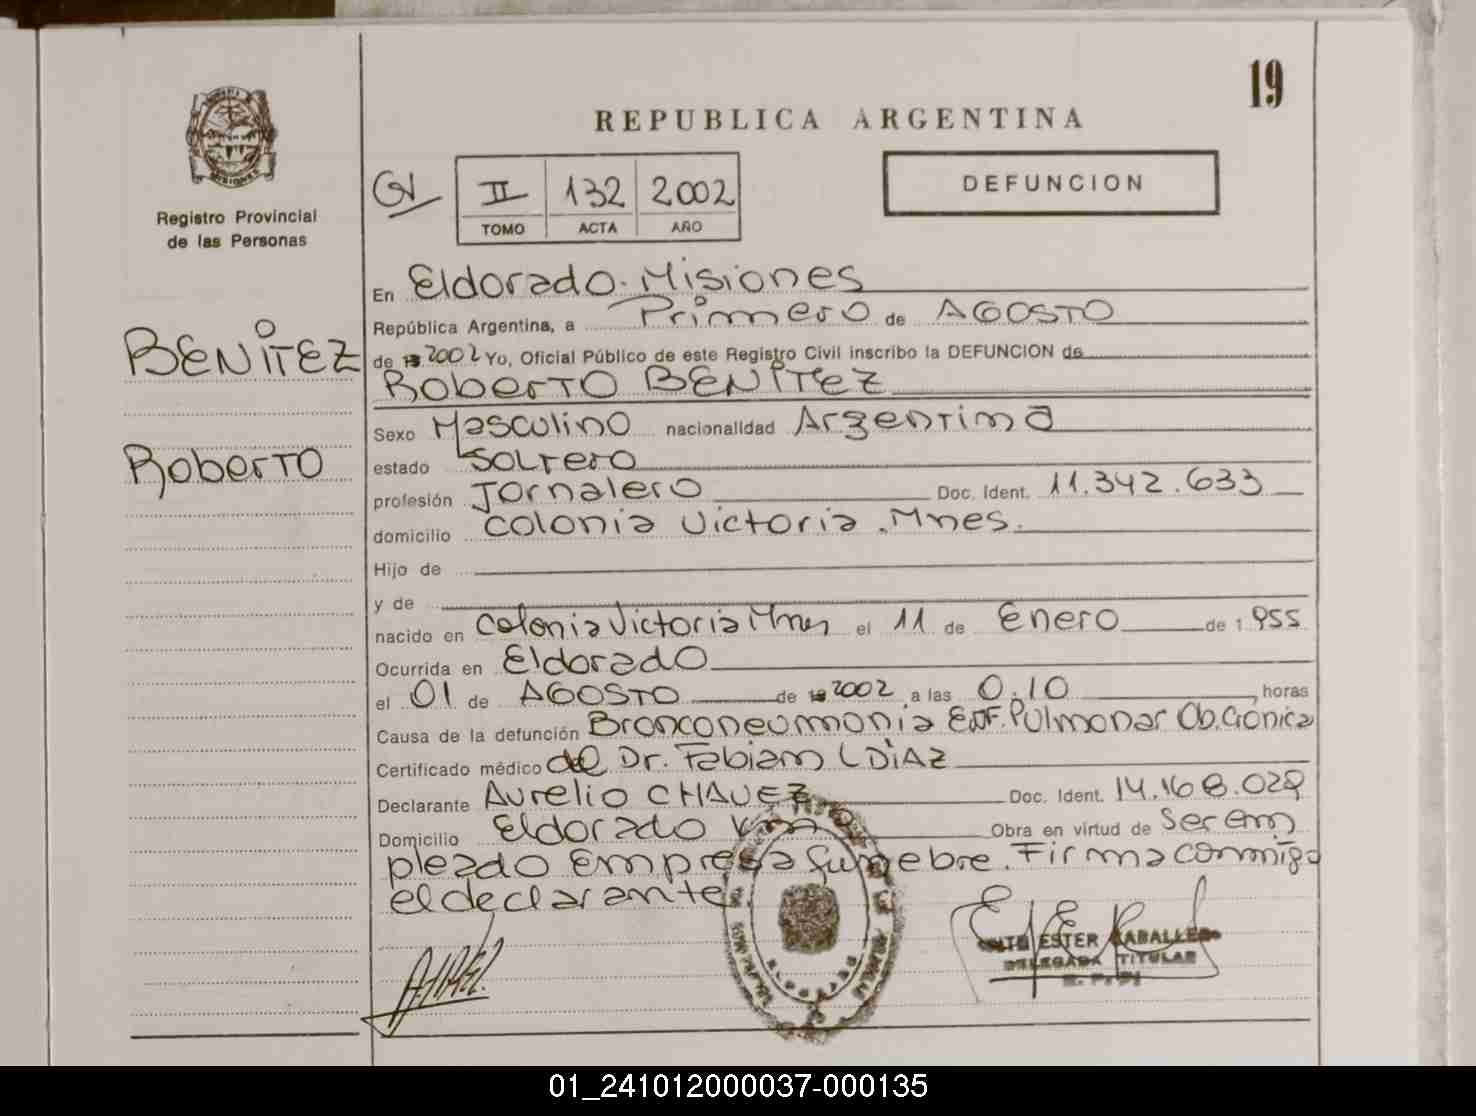 19
REPUBLICA ARGENTINA
MISIONES
Registro Provincial
de las Personas
II 132 2002
TOMO ACTA AÑO
DEFUNCION
BENITEZ
Roberto
En Eldorado. Misiones
República Argentina, a Primero de AGOSTO
de 2002 Yo, Oficial Público de este Registro Civil inscribo la DEFUNCION de
Roberto BENITEZ
Sexo Masculino nacionalidad Argentina
estado SOLTERO
profesión Jornalero Doc. Ident. 11.342.633
domicilio colonia Victoria. Mnes.
Hijo de
y de
nacido en Colonia Victoria Mnes el 11 de Enero de 1955
Ocurrida en Eldorado
el 01 de AGOSTO de 2002 a las 0.10 horas
Causa de la defunción Bronconeumonia Enf. Pulmonar Ob. Crónica
Certificado médico del Dr. Fabian L DIAZ
Declarante Aurelio CHAVEZ Doc. Ident. 14.168.029
Domicilio Eldorado Km Obra en virtud de Ser em
pleado empresa funebre. Firma conmigo
el declarante
ESTER CABALLERO
DELEGADA TITULAR
ELDORADO
01_241012000037-000135